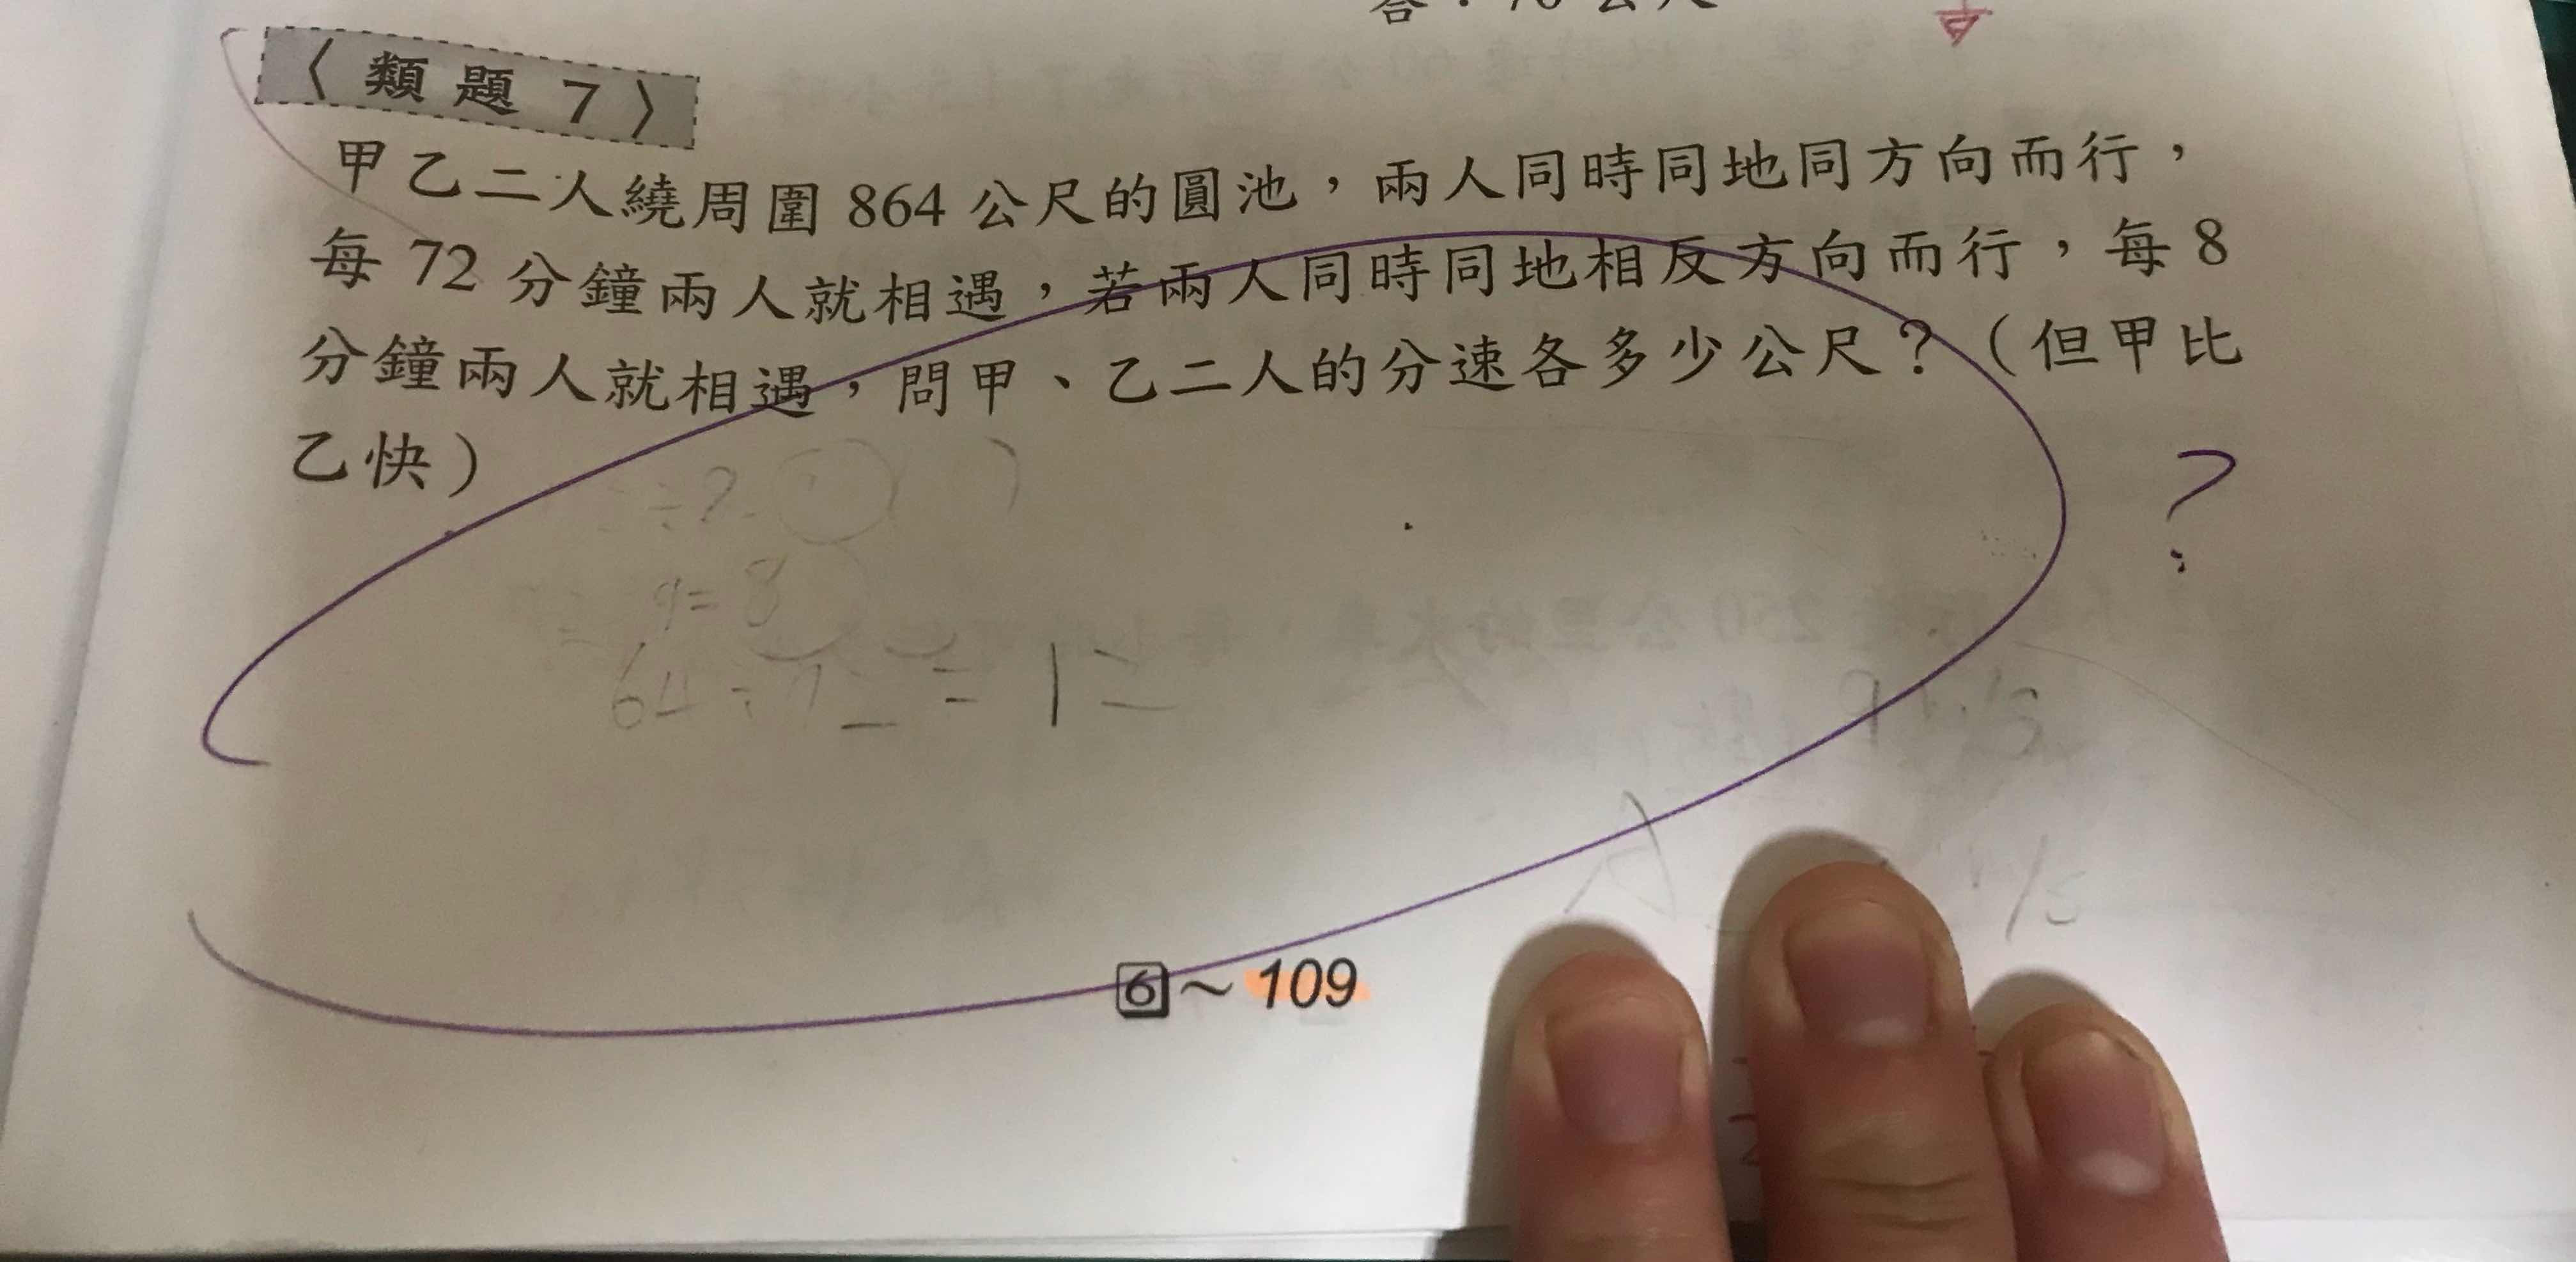 答：70 公尺
〈類題 7〉
甲乙二人繞周圍 864 公尺的圓池，兩人同時同地同方向而行，
每 72 分鐘兩人就相遇，若兩人同時同地相反方向而行，每 8
分鐘兩人就相遇，問甲、乙二人的分速各多少公尺？（但甲比
乙快）
?
64÷72=12
6～109